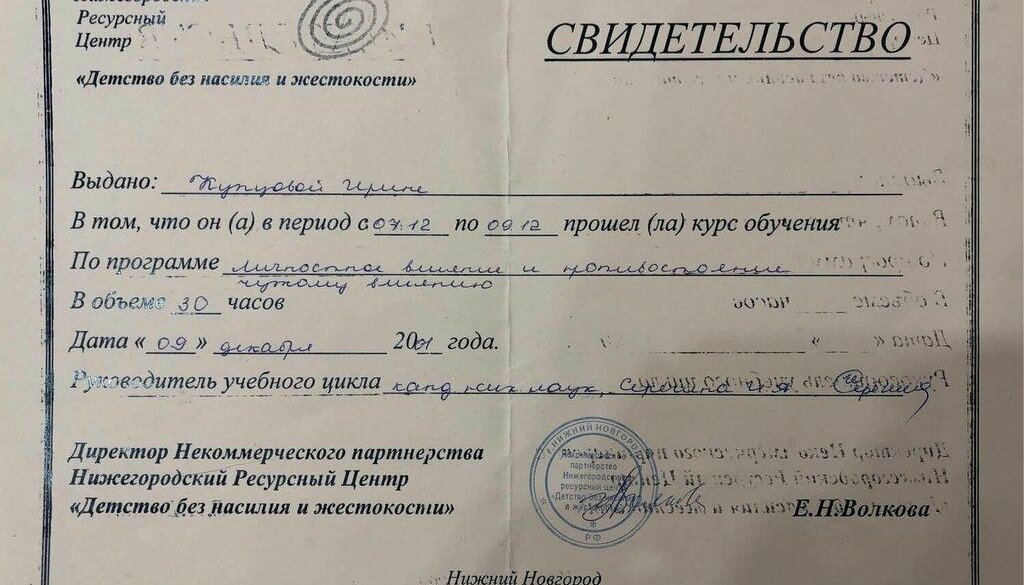 Нижегородский
Ресурсный
Центр
«Детство без насилия и жестокости»
СВИДЕТЕЛЬСТВО
Выдано: Купцовой Ирине
В том, что он (а) в период с 07.12 по 09.12 прошел (ла) курс обучения
По программе личностное влияние и противостояние
чужому влиянию
В объеме 30 часов
Дата « 09 » декабря 2001 года.
Руководитель учебного цикла канд. псих. наук, Серегина И.А.
Директор Некоммерческого партнерства
Нижегородский Ресурсный Центр
«Детство без насилия и жестокости»
Е.Н.Волкова
г. НИЖНИЙ НОВГОРОД
Некоммерческое
партнерство
Нижегородский
ресурсный центр
«Детство без насилия
и жестокости»
РФ
Нижний Новгород